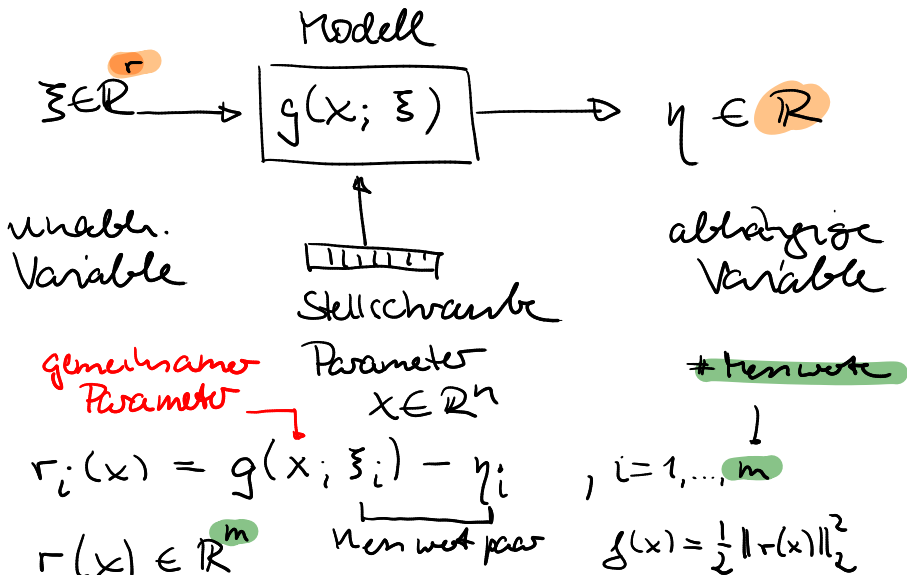 Modell
ξ ∈ ℝ^r
g(x; ξ)
η ∈ ℝ
unabh.
Variable
abhängige
Variable
Stellschraube
Parameter
x ∈ ℝ^n
gemeinsamer
Parameter
# Messwerte
r_i(x) = g(x; ξ_i) − η_i , i = 1, ..., m
Messwertpaar
r(x) ∈ ℝ^m
f(x) = 1/2 ‖r(x)‖_2^2